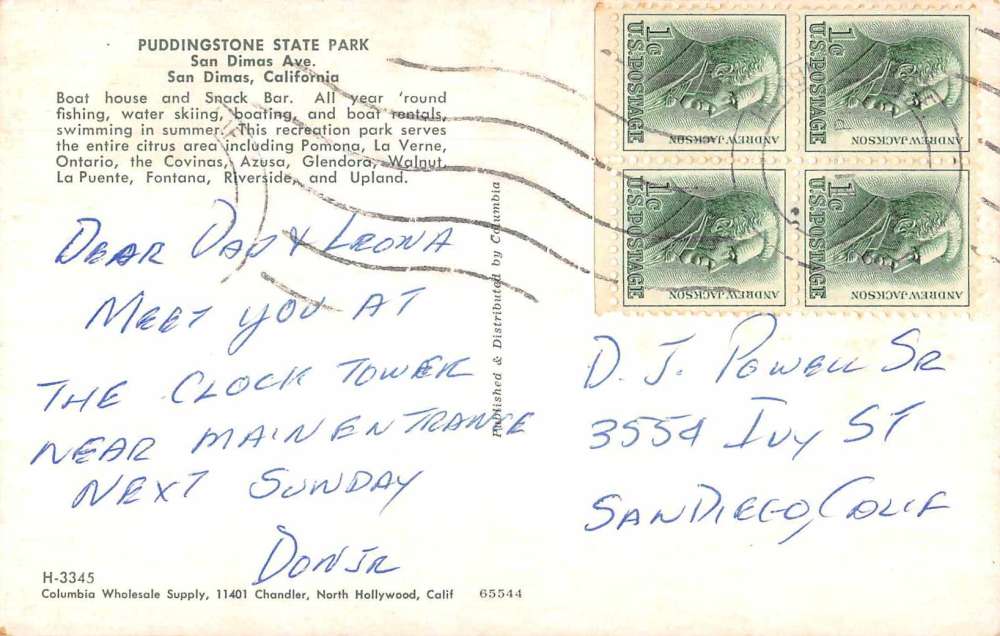 PUDDINGSTONE STATE PARK
San Dimas Ave.
San Dimas, California
Boat house and Snack Bar. All year 'round
fishing, water skiing, boating, and boat rentals,
swimming in summer. This recreation park serves
the entire citrus area including Pomona, La Verne,
Ontario, the Covinas, Azusa, Glendora, Walnut,
La Puente, Fontana, Riverside, and Upland.
DEAR DAD & LEONA
MEET YOU AT
THE CLOCK TOWER
NEAR MAIN ENTRANCE
NEXT SUNDAY
DON JR
H-3345
Columbia Wholesale Supply, 11401 Chandler, North Hollywood, Calif 65544
Published & Distributed by Columbia
1c U.S. POSTAGE ANDREW JACKSON
1c U.S. POSTAGE ANDREW JACKSON
1c U.S. POSTAGE ANDREW JACKSON
1c U.S. POSTAGE ANDREW JACKSON
D. J. POWELL SR
3554 IVY ST
SAN DIEGO, CALIF